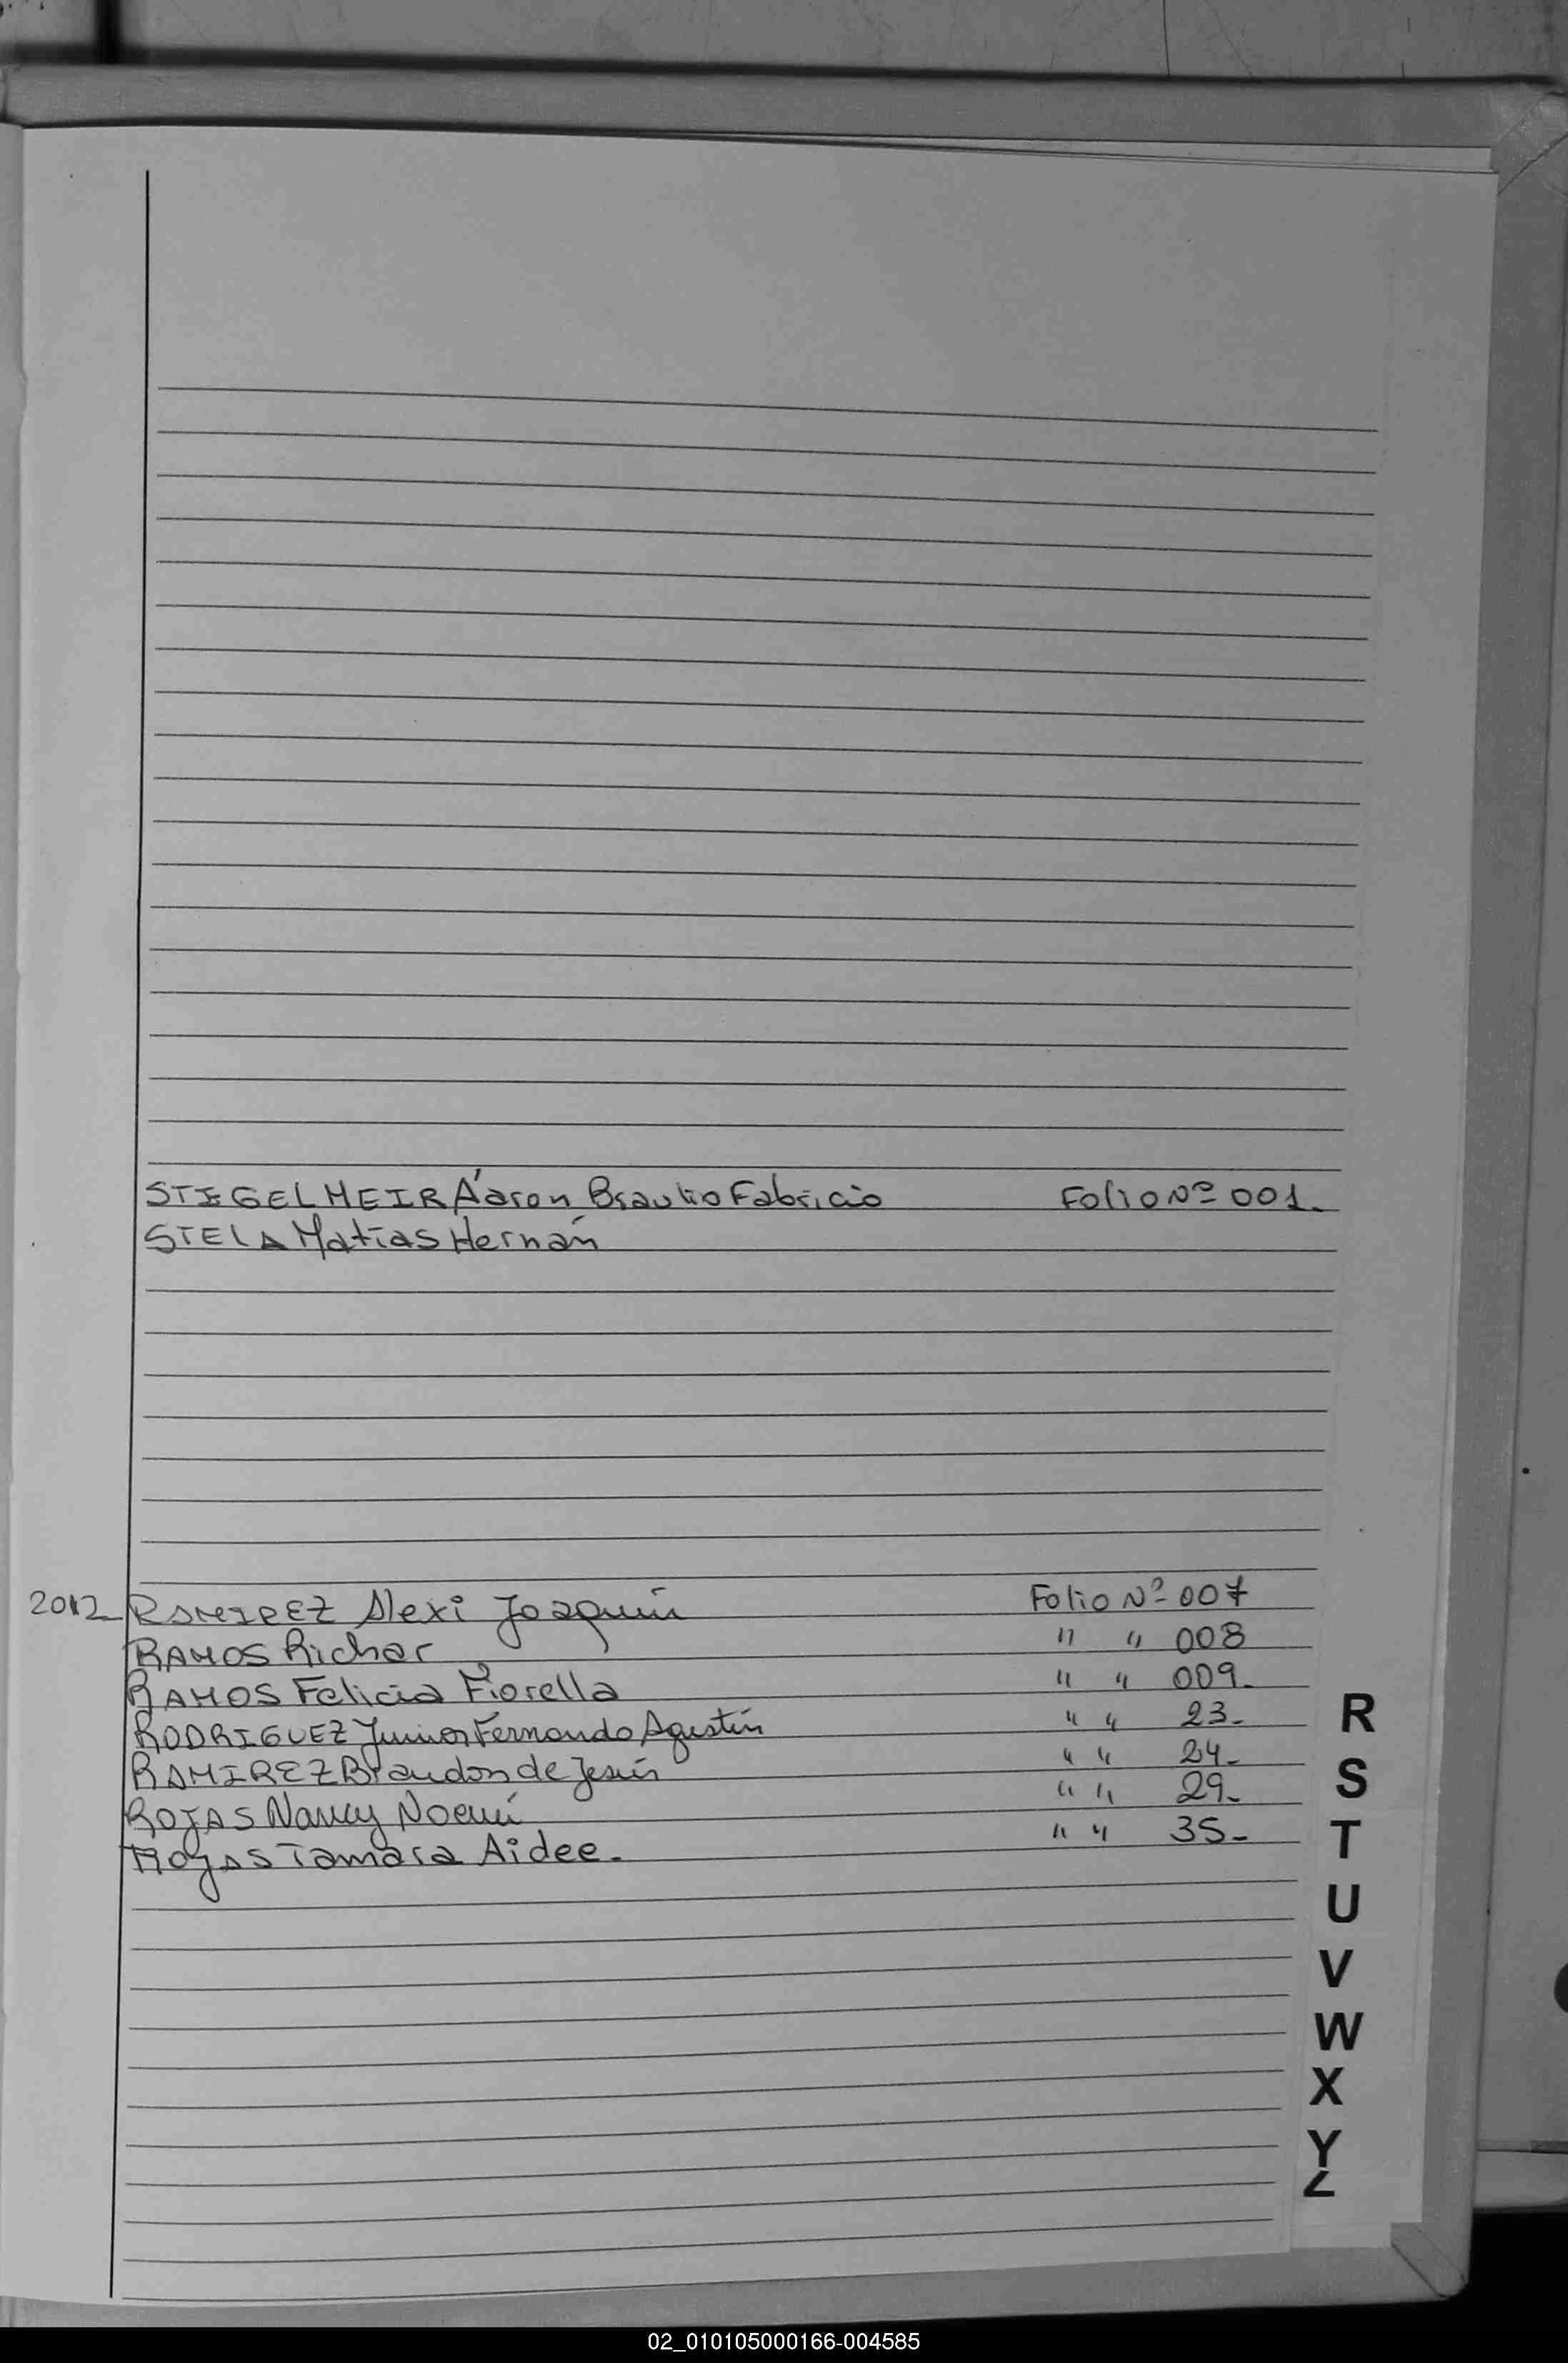 STIEGELMEIR Áaron Braulio Fabricio Folio Nº 001.
STELA Matías Hernán
2012 RAMIREZ Alexi Joaquín Folio Nº 007
RAMOS Richar " " 008
RAMOS Felicia Fiorella " " 009.
RODRIGUEZ Junior Fernando Agustín " " 23-
RAMIREZ Brandon de Jesús " " 24-
ROJAS Nancy Noemí " " 29-
Rojas Tamara Aidee. " " 35-
R
S
T
U
V
W
X
Y
Z
02_010105000166-004585